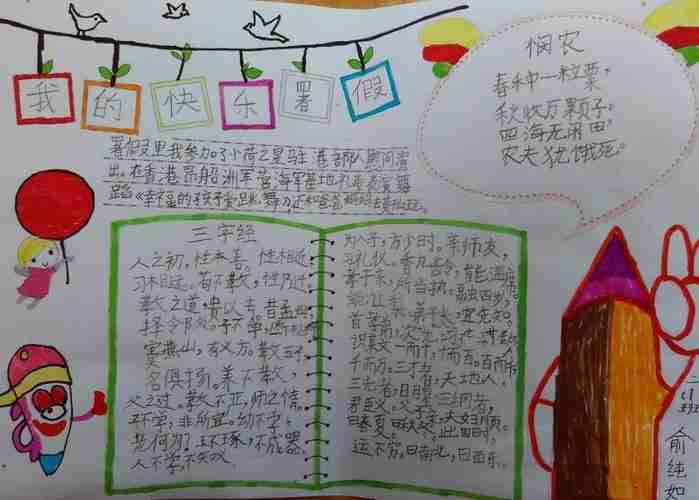 我的快乐署假
悯农
春种一粒粟,
秋收万颗子。
四海无闲田,
农夫犹饿死。
暑假里我参加了小荷之星驻港部队慰问演
出。在香港昂船洲军营海军基地礼堂表演舞
蹈《幸福的孩子爱跳舞》还和爸爸妈妈去
三字经
人之初,性本善。性相近,
习相远。苟不教,性乃迁。
教之道,贵以专。昔孟母,
择邻处。子不学,断机杼
窦燕山,有义方。教五子,
名俱扬。养不教,
父之过。教不严,师之惰。
子不学,非所宜。幼不学,
老何为?玉不琢,不成器,
人不学,不知义
为人子,方少时。亲师友,
习礼仪。香九龄,能温席。
孝于亲,所当执。融四岁,
能让梨。弟于长,宜先知。
首孝弟,次见闻
识某文。一而十,十而百。百而千
千而万。三才者,天地人,
三光者,日月星。三纲者,
君臣义,父子亲,夫妇顺。
曰春夏,曰秋冬,此四时,
运不穷。曰南北,曰西东。
一(1)班
俞纯如